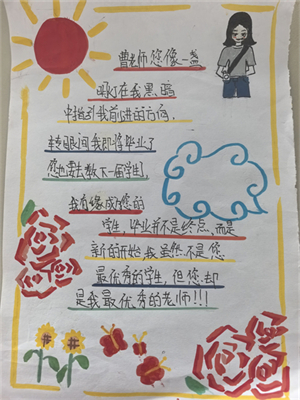 曹老师您像一盏
明灯在我黑暗
中指引我前进的方向，
转眼间我即将毕业了
您也要去教下一届学生，
我有缘成为您的
学生，毕业并不是终点，而是
新的开始我虽然不是您
最优秀的学生，但您却
是我最优秀的老师！！！